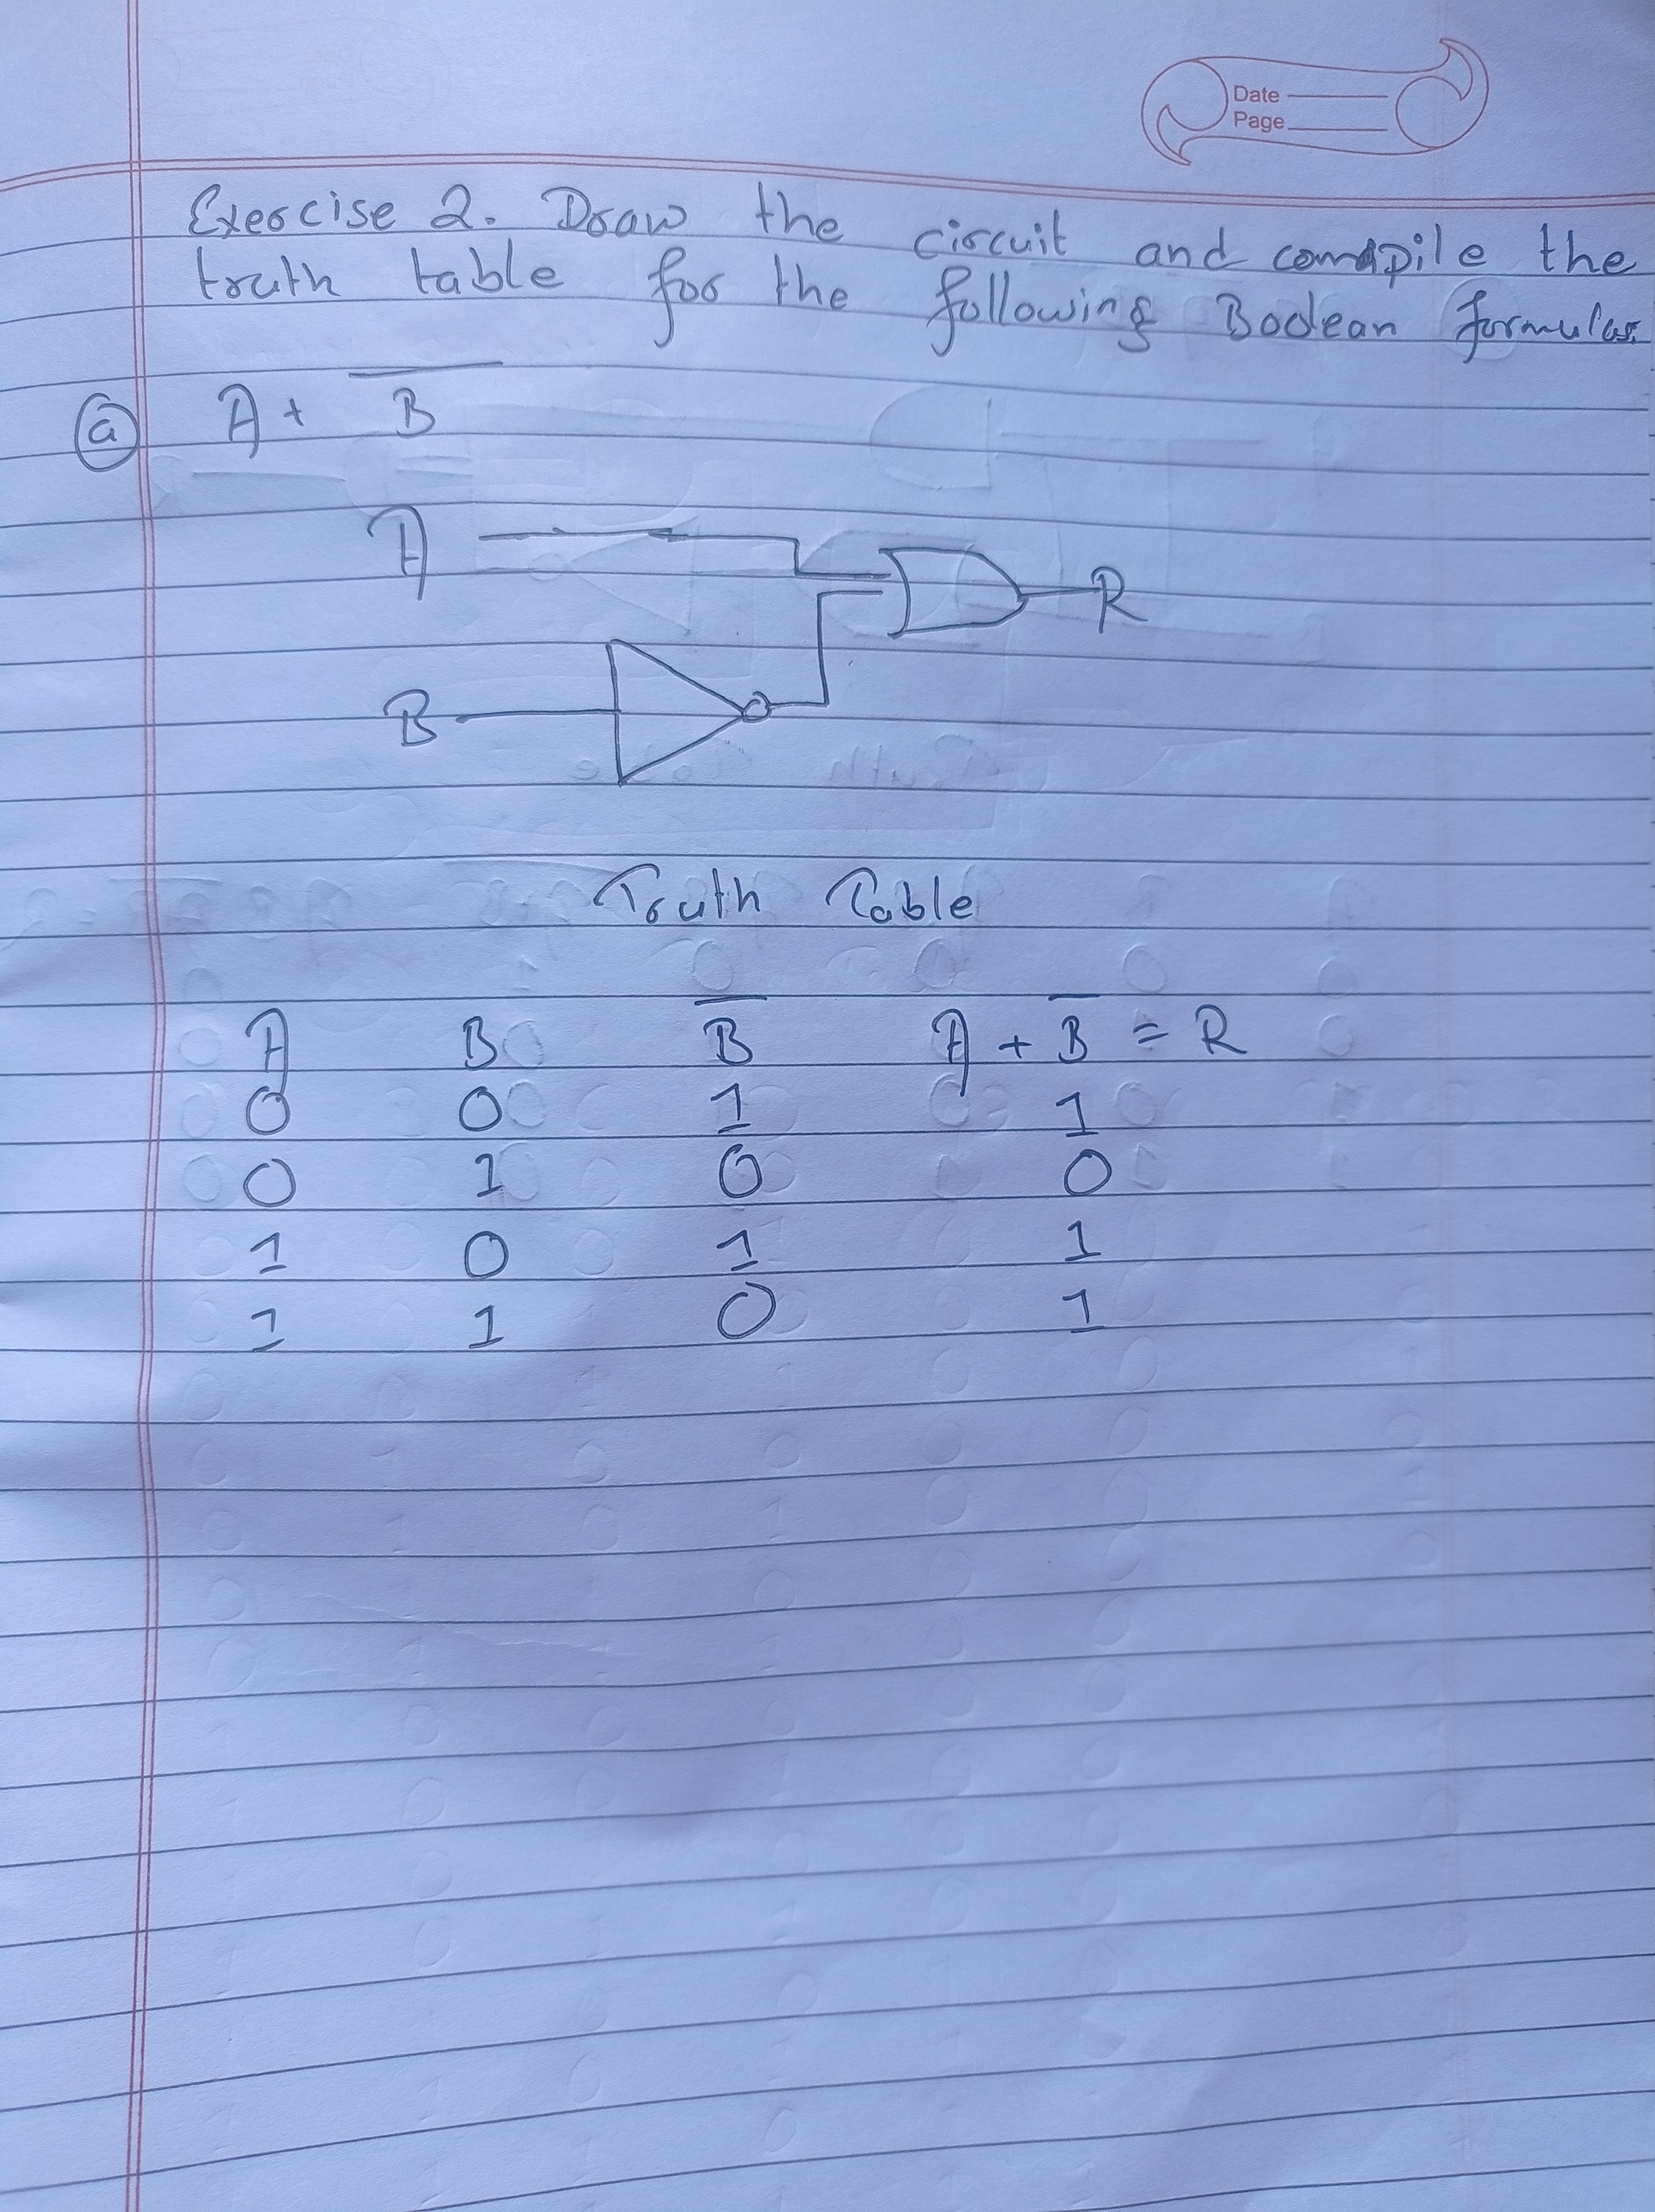 Date
Page
Exercise 2. Draw the circuit and compile the
truth table for the following Boolean formulas.
(a) A + B̅
A
R
B
Truth Table
A B B̅ A + B̅ = R
0 0 1 1
0 1 0 0
1 0 1 1
1 1 0 1